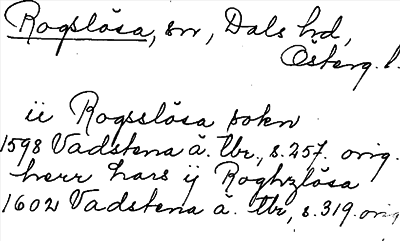 Rogslösa, sn, Dals hd,
Österg. l.
ii Rogsslösa sokn
1598 Vadstena ä. Tbr, s. 257. orig.
herr Lars ij Roghzlösa
1602 Vadstena ä. Tbr, s. 319. orig